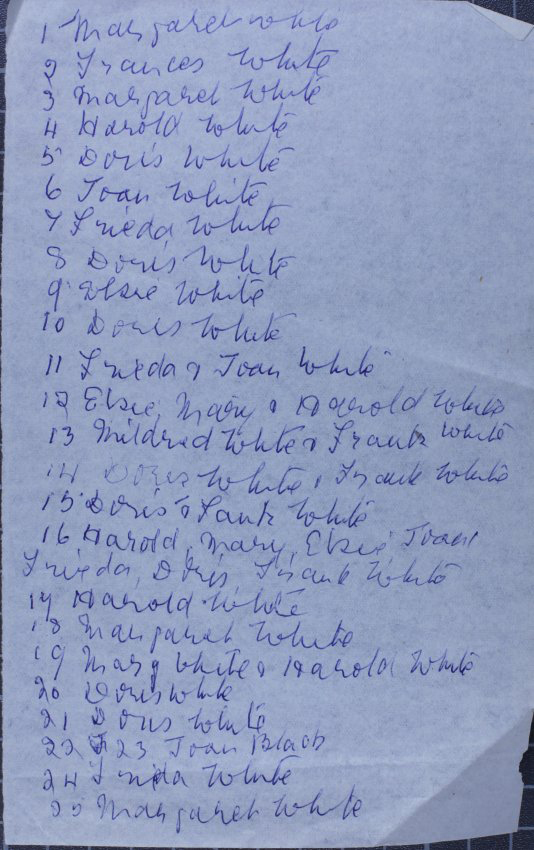 1 Margaret White
2 Frances White
3 Margaret White
4 Harold White
5 Doris White
6 Joan White
7 Frieda White
8 Doris White
9 Elsie White
10 Doris White
11 Frieda & Joan White
12 Elsie, Mary & Harold White
13 Mildred White & Frank White
14 Doris White & Frank White
15 Doris & Fank White
16 Harold, Mary, Elsie Joan
Frieda, Doris Frank White
17 Harold White
18 Margaret White
19 Mary White & Harold White
20 Doris White
21 Doris White
22 & 23 Joan Black
24 Frieda White
25 Margaret White